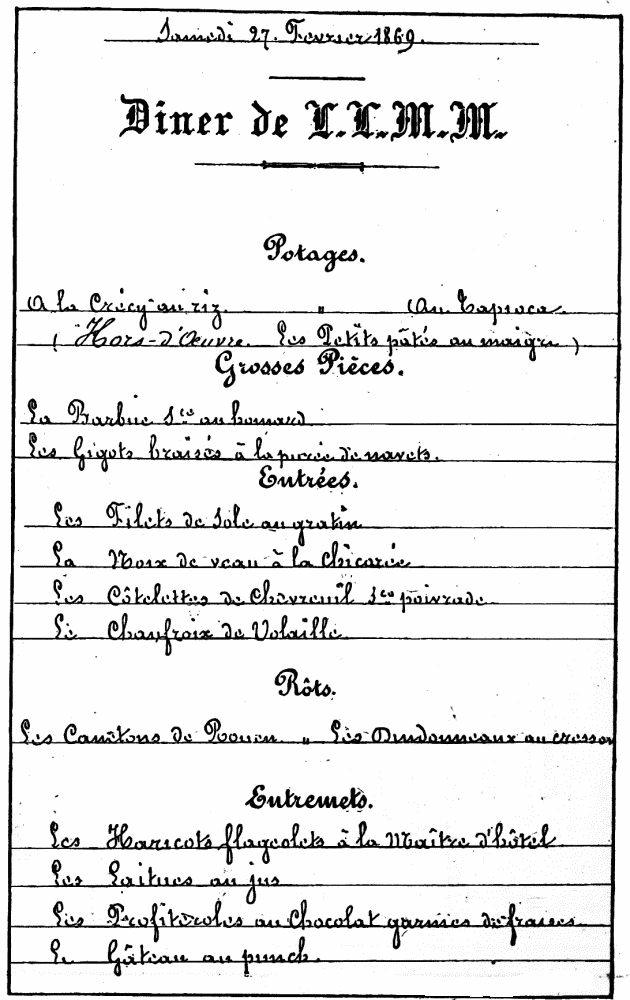 Samedi 27. Fevrier 1869.
Diner de L.L.M.M.
Potages.
A la Crécy au riz. " Au Tapioca.
( Hors-d'Œuvre. Les Petits pâtés au maigre )
Grosses Pièces.
La Barbue Sce au homard
Les Gigots braisés à la purée de navets.
Entrées.
Les Filets de Sole au gratin
La Noix de veau à la chicorée
Les Côtelettes de Chevreuil Sce poivrade
Le Chaufroix de Volaille
Rôts.
Les Canetons de Rouen " Les Dindonneaux au cresson
Entremets.
Les Haricots flageolets à la Maître d'hôtel
Les Laitues au jus
Les Profiteroles au Chocolat garnies de
Le Gâteau au punch.